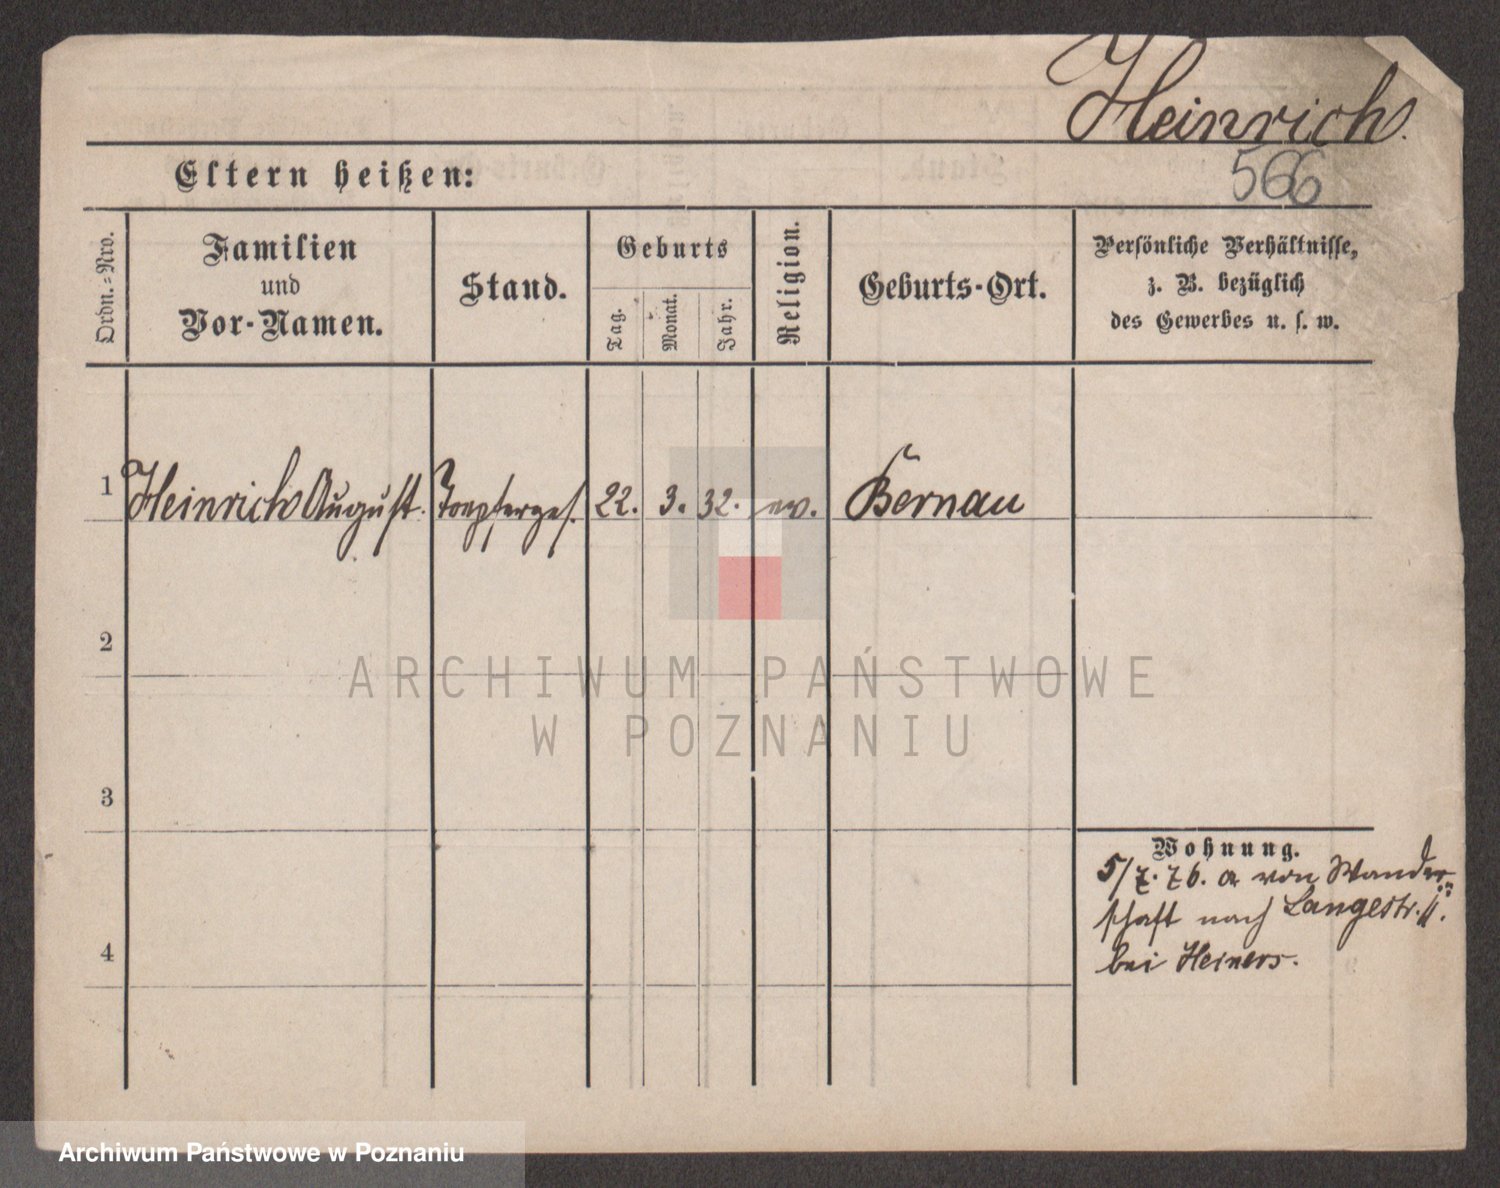 Heinrich.
566
Eltern heißen:
Ordn.=Nro.
Familien
und
Vor-Namen.
Stand.
Geburts
Tag.
Monat.
Jahr.
Religion.
Geburts-Ort.
Persönliche Verhältnisse,
z. B. bezüglich
des Gewerbes u. s. w.
1 Heinrich August. 22. 3. 32. ev. Bernau
2
3
4
Wohnung.
5/7. 76. a von Wander-
schaft nach Langestr. 11.
bei Heiners.
ARCHIWUM PAŃSTWOWE
W POZNANIU
Archiwum Państwowe w Poznaniu